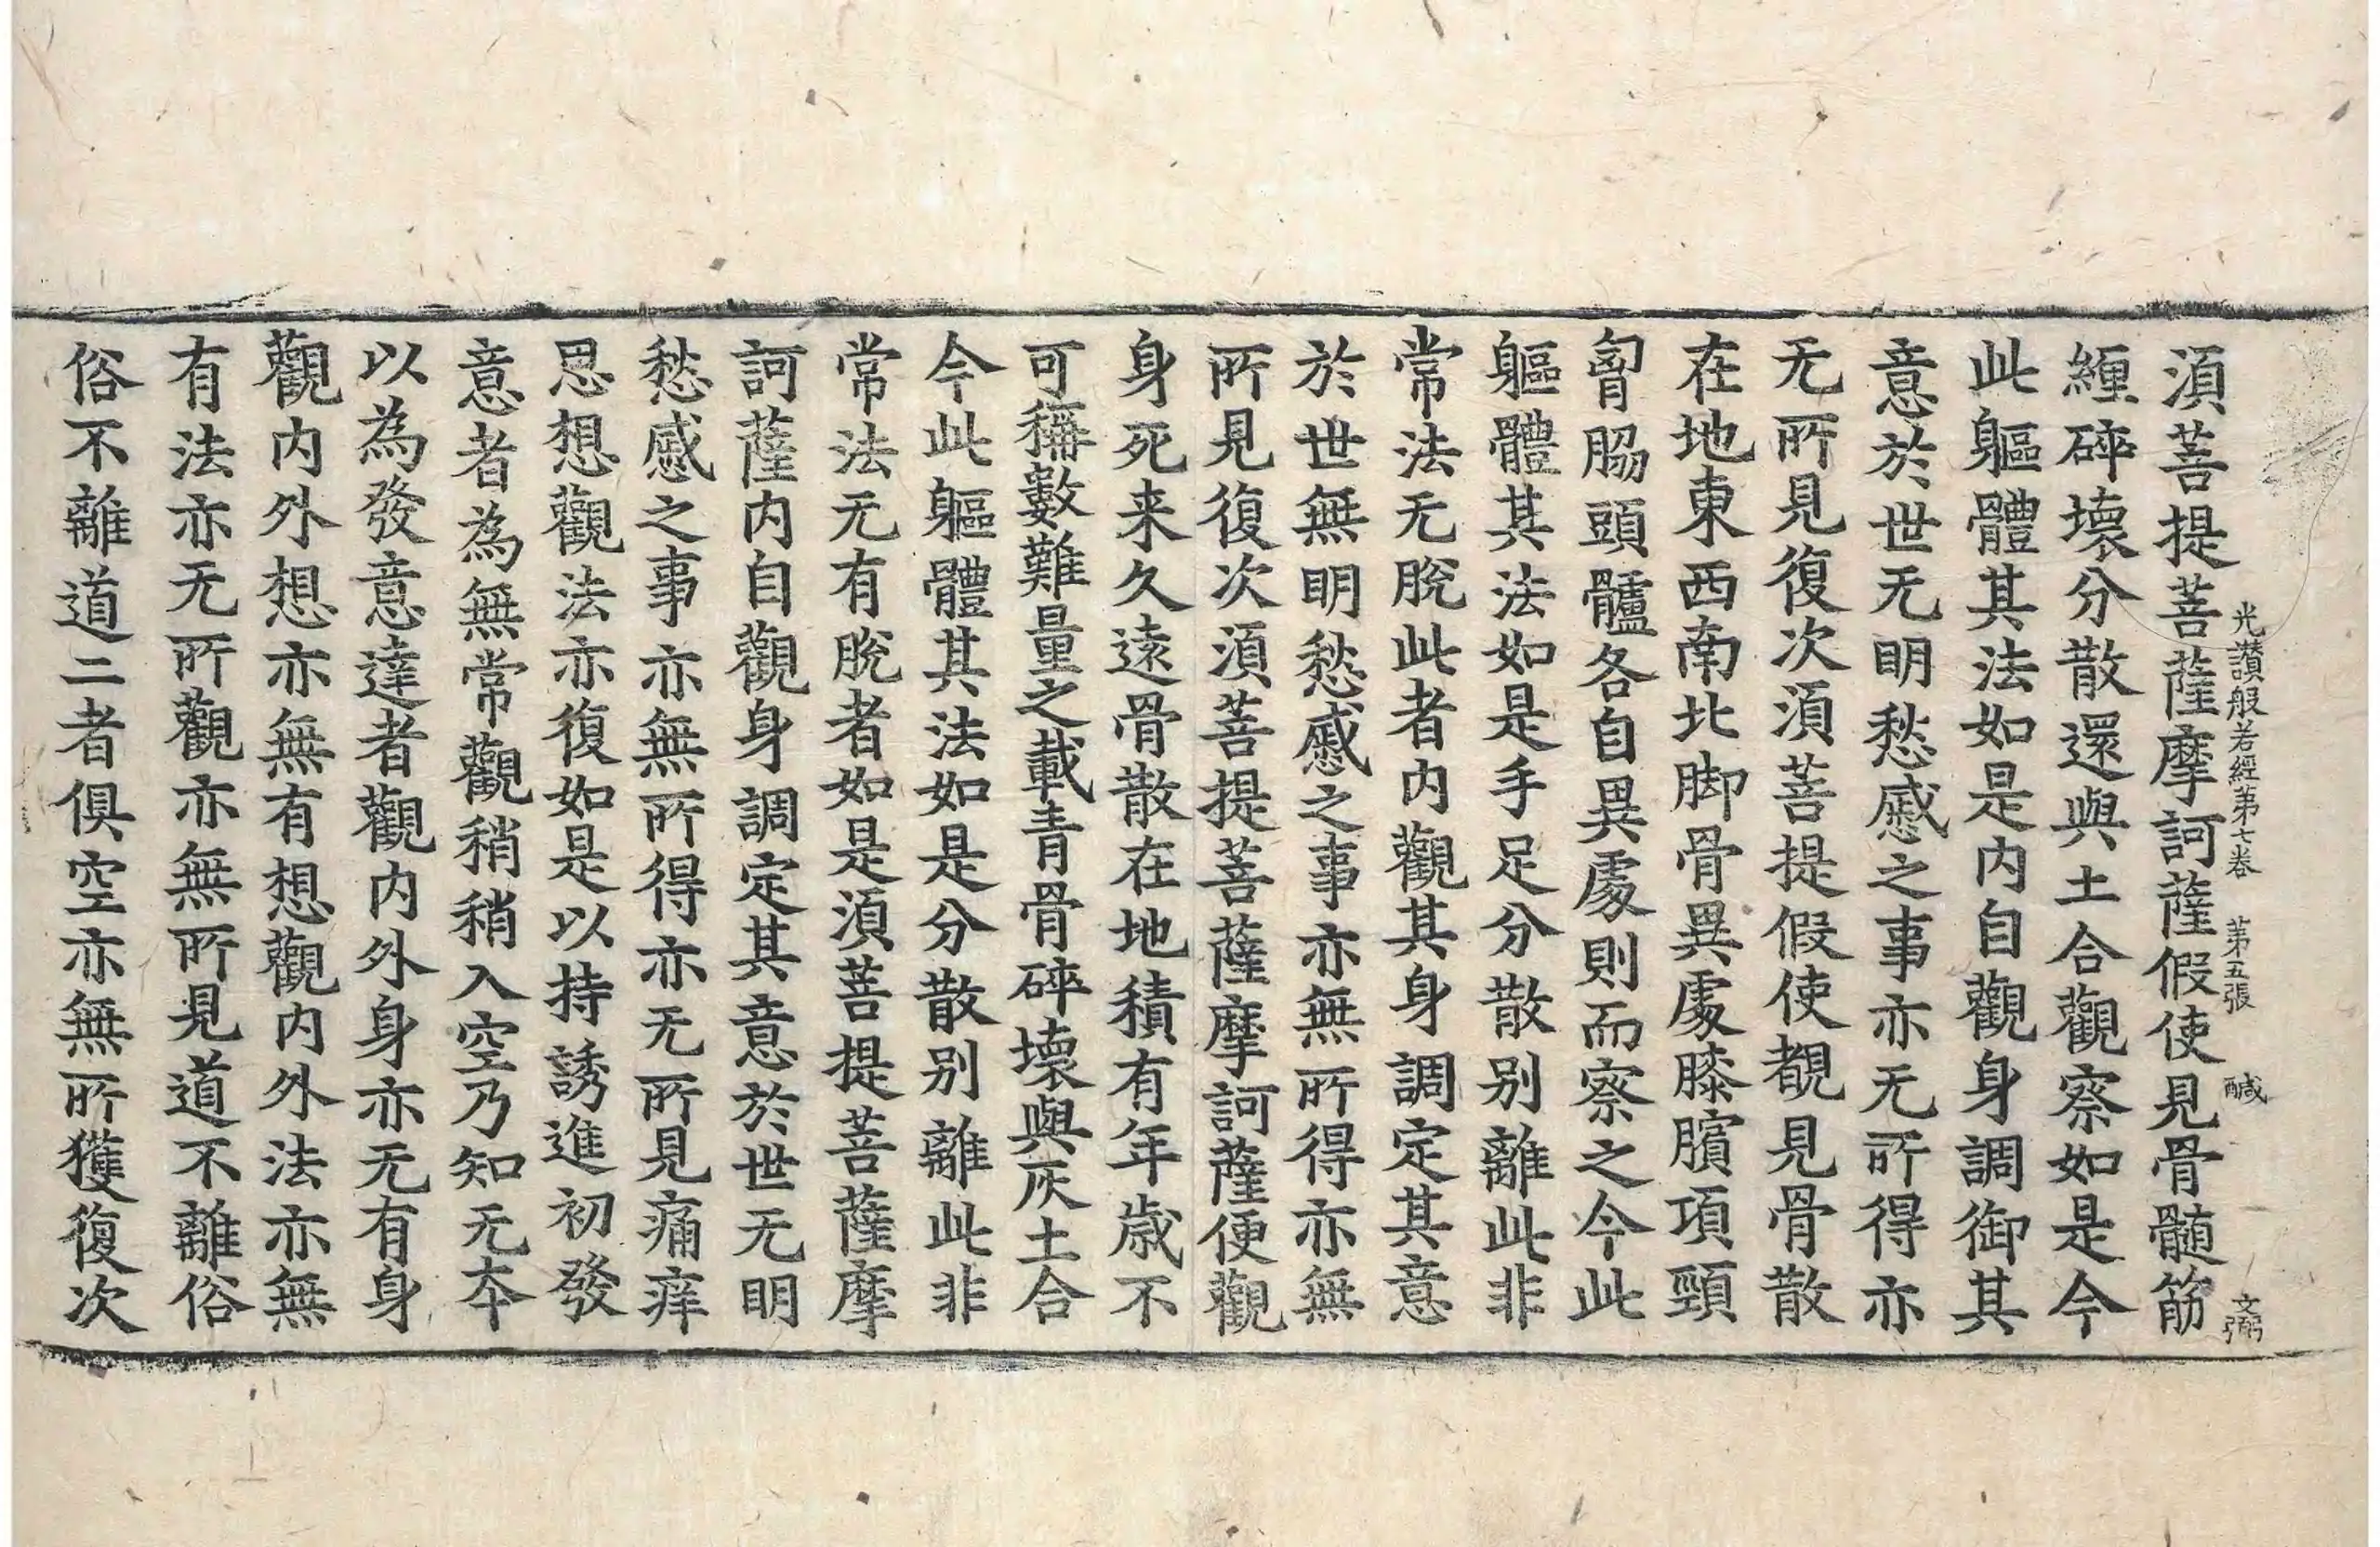 須菩提菩薩摩訶薩假使見骨髄筋
纏碎壞分散還與土合觀察如是今
此軀體其法如是内自觀身調御其
意於世无明愁慼之事亦无所得亦
无所見復次須菩提假使覩見骨散
在地東西南北脚骨異處膝臏項頸
胷脇頭髗各自異處則而察之今此
軀體其法如是手足分散别離此非
常法无脫此者内觀其身調定其意
於世無明愁慼之事亦無所得亦無
所見復次須菩提菩薩摩訶薩便觀
身死来久遠骨散在地積有年歲不
可稱數難量之載青骨碎壞與灰土合
今此軀體其法如是分散别離此非
常法无有脫者如是須菩提菩薩摩
訶薩内自觀身調定其意於世无明
愁慼之事亦無所得亦无所見痛痒
思想觀法亦復如是以持誘進初發
意者為無常觀稍稍入空乃知无夲
以為發意達者觀内外身亦无有身
觀内外想亦無有想觀内外法亦無
有法亦无所觀亦無所見道不離俗
俗不離道二者俱空亦無所獲復次
光讃般若經第七卷 第五張 醎 文弼